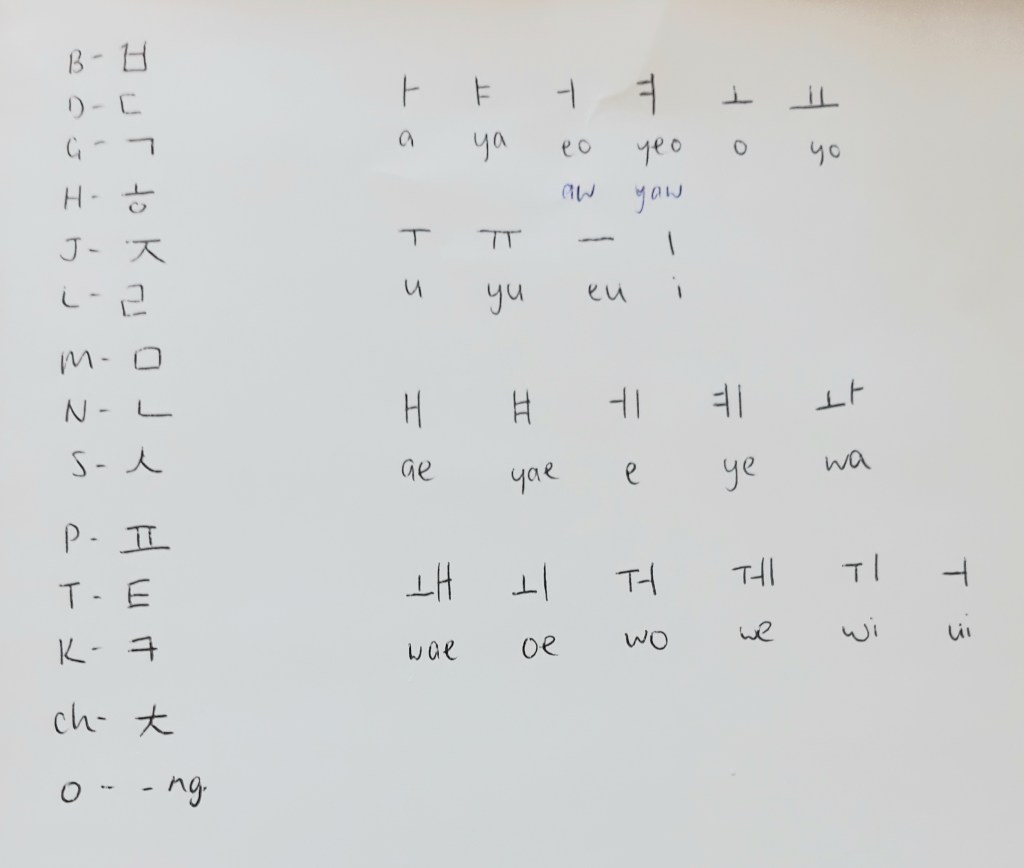 B - ㅂ
D - ㄷ
G - ㄱ
H - ㅎ
J - ㅈ
L - ㄹ
M - ㅁ
N - ㄴ
S - ㅅ
P - ㅍ
T - ㅌ
K - ㅋ
ch - ㅊ
ㅇ - - ng.
ㅏ ㅑ ㅓ ㅕ ㅗ ㅛ
a ya eo yeo o yo
aw yaw
ㅜ ㅠ ㅡ ㅣ
u yu eu i
ㅐ ㅒ ㅔ ㅖ ㅘ
ae yae e ye wa
ㅙ ㅚ ㅝ ㅞ ㅟ ㅓ
wae oe wo we wi ui